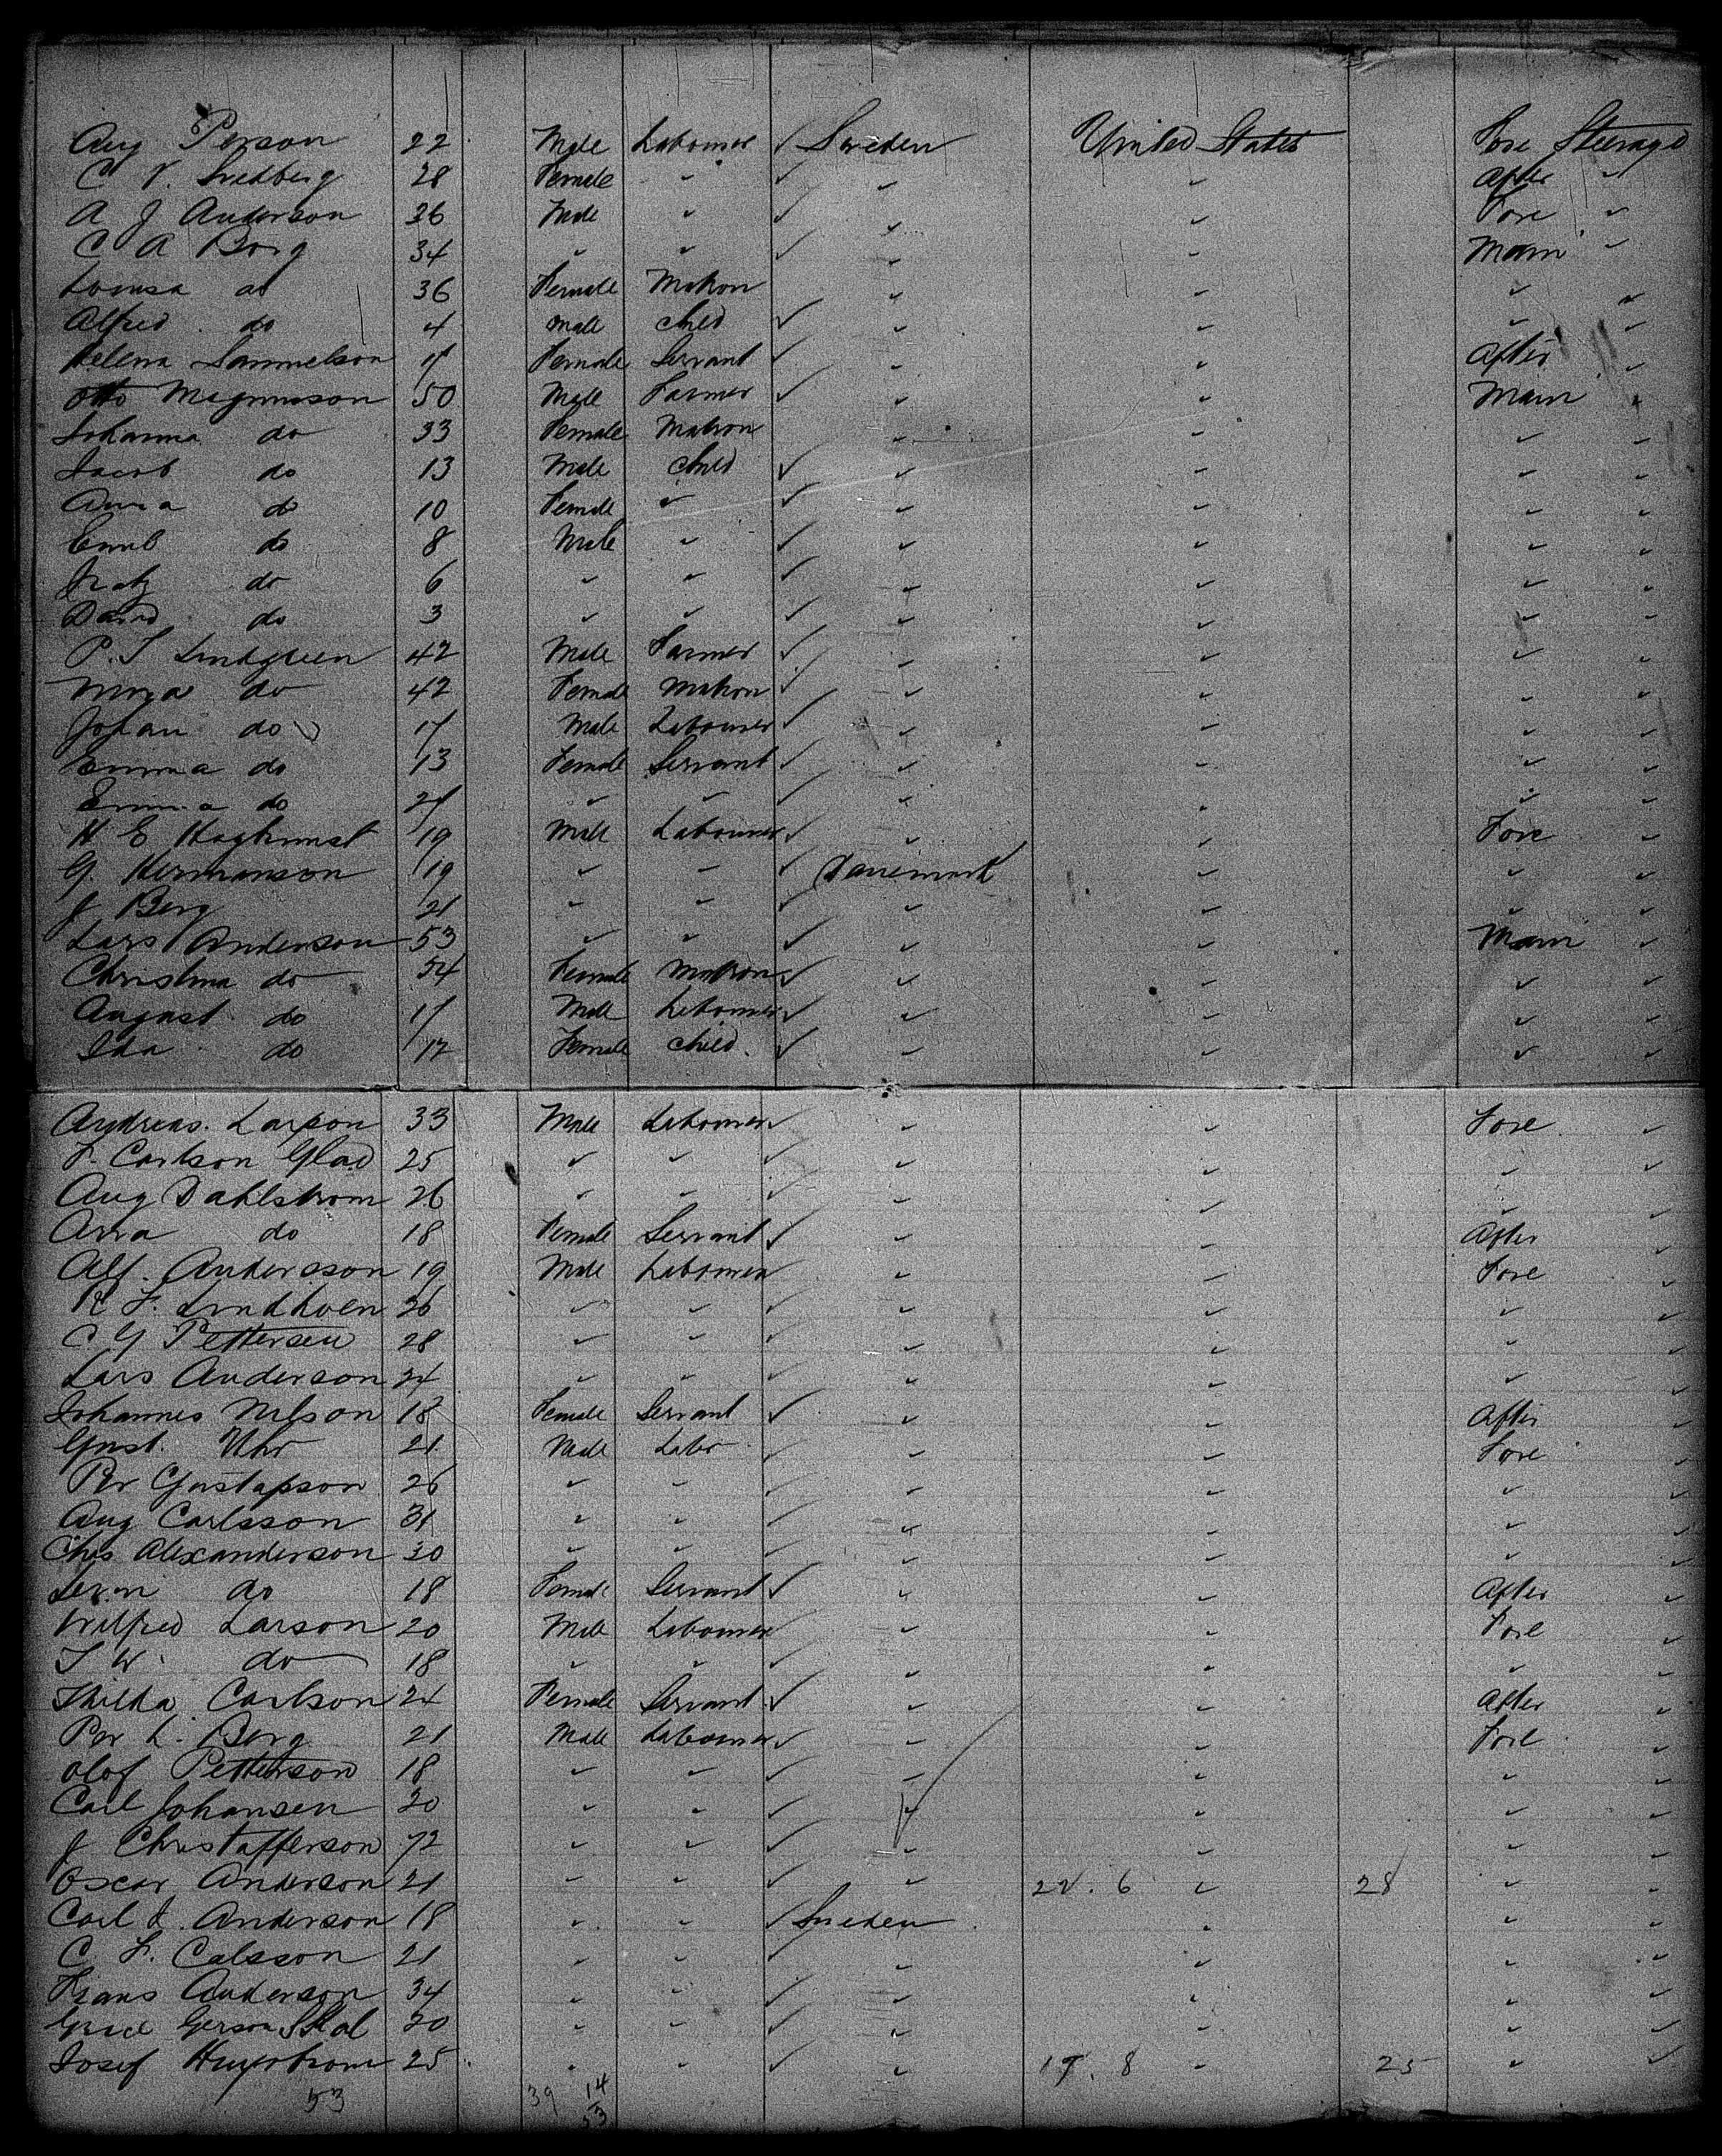 Aug Person 22 Male Labourer ✓ Sweden United States Fore Steerage
C V. Svedberg 28 Female " ✓ " " After "
A J Anderson 26 Male " ✓ " " Fore "
C A Borg 34 " " ✓ " " Main "
Lovisa do 36 Female Matron " " " "
Alfred do 4 Male Child ✓ " " " "
Helena Sammelson 17 Female Servant ✓ " " After "
Otto Magnusson 50 Male Farmer ✓ " " Main "
Johanna do 33 Female Matron " " " "
Jacob do 13 Male Child ✓ " " " "
Anna do 10 Female " ✓ " " " "
Emil do 8 Male " ✓ " " " "
do 6 " " ✓ " " " "
David do 3 " " ✓ " " " "
P. J Lindgreen 42 Male Farmer ✓ " " " "
do 42 Female Matron ✓ " " " "
Johan do 17 Male Labourer ✓ " " " "
Emma do 13 Female Servant ✓ " " " "
Emma do 21 " " ✓ " " " "
H E 19 Male Labourer ✓ " " Fore "
G. Hermanson 19 " " ✓ Danemark " " "
J Berg 21 " " ✓ " " " "
Lars Anderson 53 " " ✓ " " Main "
Christina do 54 Female Matron ✓ " " " "
August do 17 Male Labourer ✓ " " " "
Ida do 12 Female Child. ✓ " " " "
Andreas. Larsson 33 Male Labourer ✓ " " Fore "
F. Carlson Glad 25 " " ✓ " " " "
Aug Dahlstrom 26 " " ✓ " " " "
Anna do 18 Female Servant ✓ " " After "
Alf. Andersson 19 Male Labourer ✓ " " Fore "
K F. Lindhoen 26 " " ✓ " " " "
C G Pettersen 28 " " ✓ " " " "
Lars Anderson 24 " " ✓ " " " "
Johannes Nilson 18 Female Servant ✓ " " After "
Gust. Uhr 21 Male Labor ✓ " " Fore "
Per Gustafson 26 " " ✓ " " " "
Aug Carlsson 31 " " ✓ " " " "
Chas Alexanderson 30 " " ✓ " " " "
do 18 Female Servant ✓ " " After "
Wilfred Larson 20 Male Labourer ✓ " " Fore "
J W. do 18 " " ✓ " " " "
Thilda Carlson 24 Female Servant ✓ " " After "
Per L. Berg 21 Male Labourer ✓ " " Fore "
Olof Petterson 18 " " ✓ " " " "
Carl Johansen 20 " " ✓ " " " "
J Christafferson 72 " " ✓ " " " "
Oscar Anderson 21 " " ✓ " 22. 6 " 28 " "
Carl J. Anderson 18 " " ✓ Sweden " " "
C F. Calsson 21 " " ✓ " " " "
Frans Anderson 34 " " ✓ " " " "
Gerson 20 " " ✓ " " " "
Josef 25 " " ✓ " 17. 8 " 25 " "
53 39 14
53